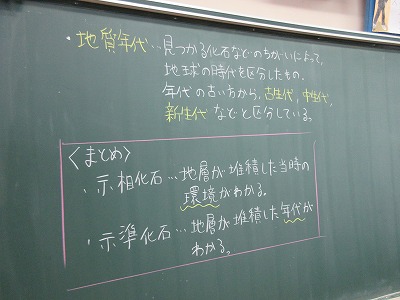 ・地質年代…見つかる化石などのちがいによって、
地球の時代を区分したもの。
年代の古い方から、古生代、中生代、
新生代などと区分している。
〈まとめ〉
・示相化石…地層が堆積した当時の
環境がわかる。
・示準化石…地層が堆積した年代が
わかる。